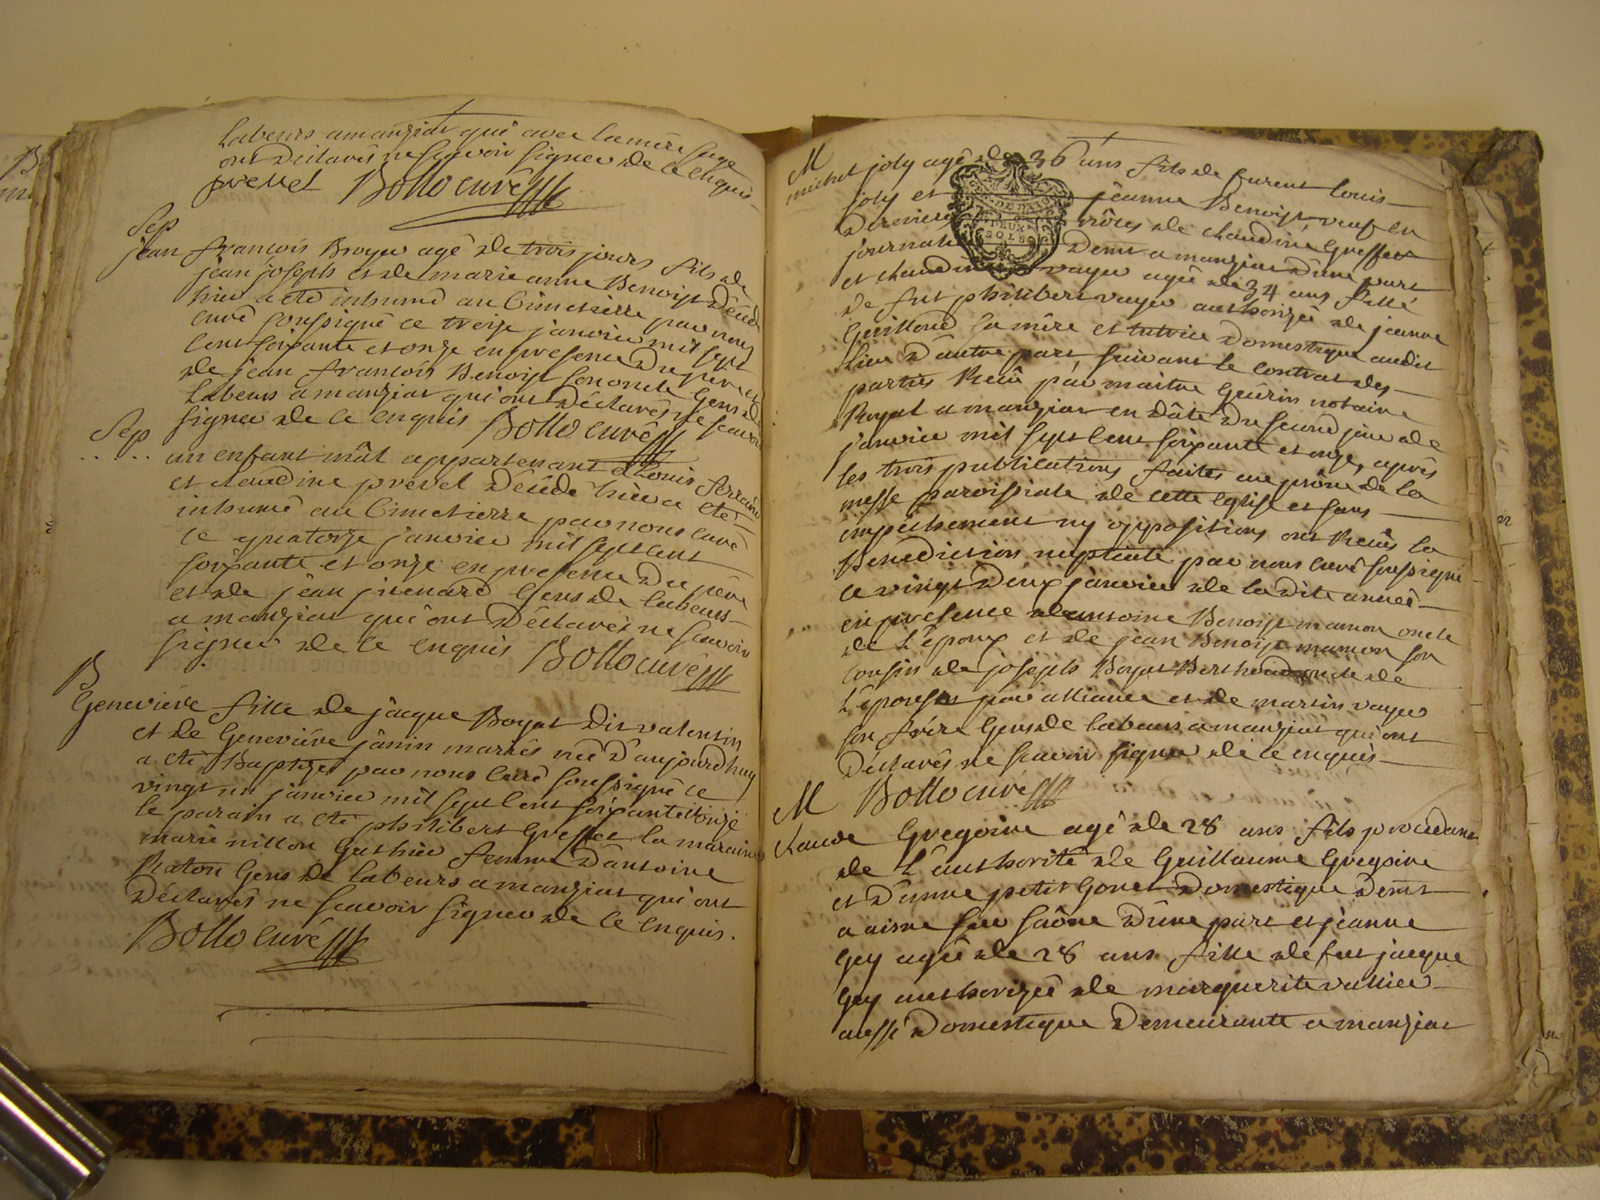 labeurs a manziat qui avec la mère sage
ont déclarés ne scavoir signer de ce enquis
prevel Bolto curé
Sep
jean françois Broyer agé de trois jours fils de
jean joseph et de marie anne Benoist décédé
hier a été inhumé au Cimetierre par nous
curé soussigné ce treize janvier mil sept
cent soixante et onze en presence du père et
de jean françois Benoist son oncle Gens de
labeurs a manziat qui ont déclarés ne scavoir
signer de ce enquis Bolto curé
Sep
un enfant mâl appartenant a Louis
et claudine prevel décédé hier a été
inhumé au Cimetierre par nous curé
le quatorze janvier mil sept cent
soixante et onze en presence du père
et de jean renard Gens de labeurs
a manziat qui ont déclarés ne scavoir
signer de ce enquis Bolto curé
B
Geneviève fille de jacque Boyat dit valentin
et de Geneviève janin mariés née d'aujourdhuy
a été Baptizée par nous curé soussigné le
vingt un janvier mil sept cent soixante et onze
le parain a été philibert Greffet la maraine
marie nillon femme d'antoine
Raton Gens de labeurs a manziat qui ont
déclarés ne scavoir signer de ce enquis.
Bolto curé
M
michel joly agé de 36 ans fils de furent Louis
joly et jeanne Benoist veuf en
derniere nôces de claudine Greffet
journalier demt a manziat d'une part
et claudine vayer agée de 34 ans fille
de fut philibert vayer authorizée de jeanne
Guilloud sa mère et tutrice domestique audit
lieu d'autre part suivant le contrat des
parties Recû par maitre Guérin notaire
Royal a manziat en date du second jour de
janvier mil sept cent soixante et onze, après
les trois publications faites au prône de la
messe paroissiale de cette Eglise et sans
empêchement ny oppositions ont Recûs la
Bénédiction nuptiale par nous curé soussigné
ce vingt deux janvier de la dite année
en présence de antoine Benoist mamon oncle
de L'époux et de jean Benoist mamon son
cousin de joseph Boyat Berthoud oncle de
L'épouse par alliance et de martin vayer
son frère Gens de labeurs a manziat qui ont
déclarés ne scavoir signer de ce enquis
Bolto curé
M
claude Gregoire agé de 28 ans fils procedant
de L'authorité de Guillaume Gregoire
et d'anne petit Gonet domestique demt
a aisne sur saône d'une part et jeanne
Gey agée de 28 ans fille de fut jacque
Gey authorizée de marguerite vallier
aussi domestique demeurante a manziat